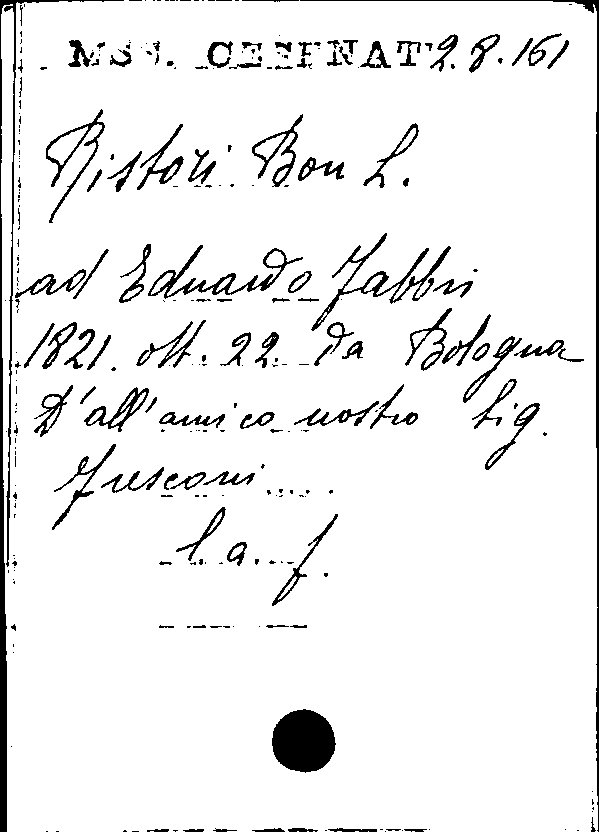 MSS. CESENAT 2.8.161
Ristori Bon L.
ad Eduardo Fabbri
1821. ott. 22. da Bologna
D'all'amico nostro Sig.
Fusconi ....
l. a. f.